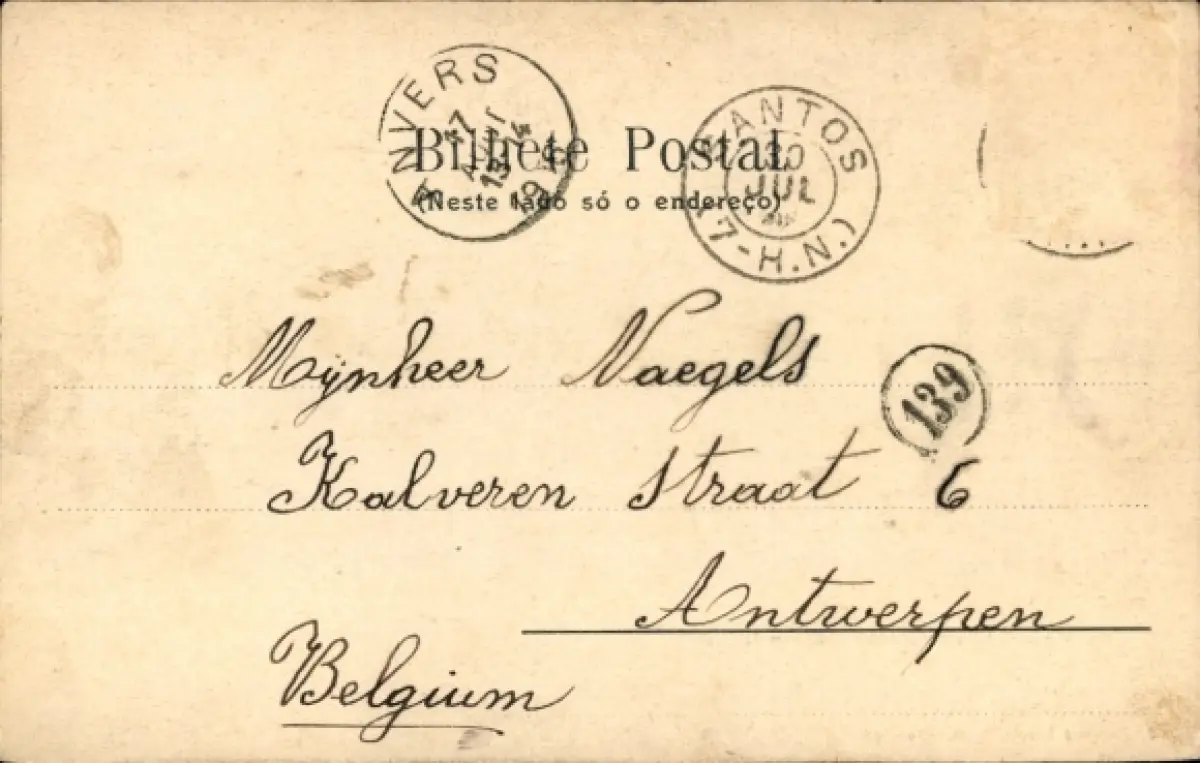 ANVERS
17
AOUT
13
19
SANTOS
30
JUL
(7-H.N.)
Bilhete Postal
(Neste lado só o endereço)
Mijnheer Naegels
139
Kalveren Straat 6
Antwerpen
Belgium